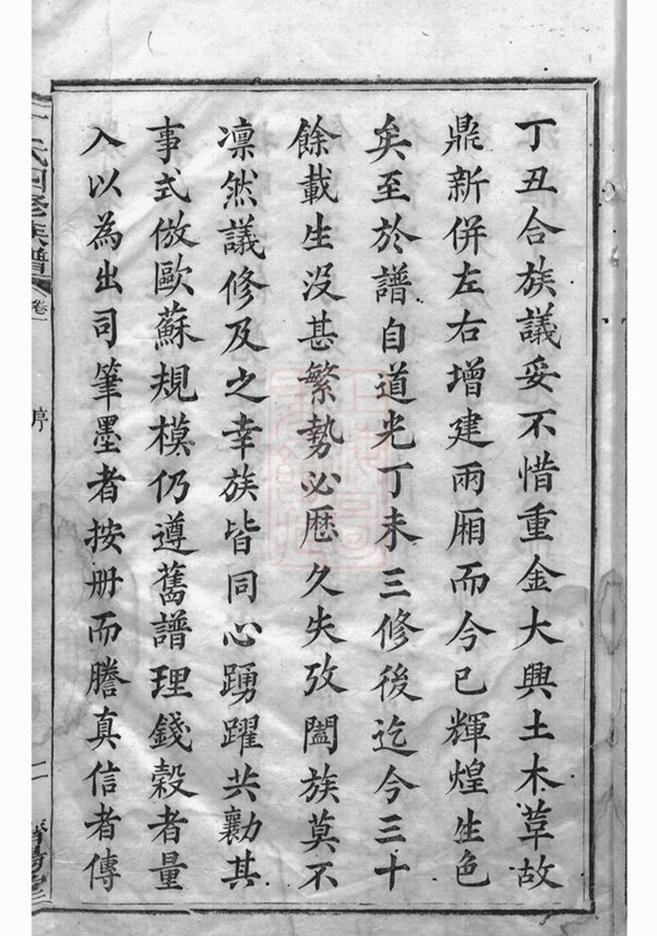 丁丑合族議妥不惜重金大興土木草故
鼎新併左右增建兩厢而今已輝煌生色
矣至於譜自道光丁未三修後迄今三十
餘載生没甚繁勢必歷久失攷闔族莫不
凛然議修及之幸族皆同心踴躍共勷其
事式倣歐蘇規模仍遵舊譜理錢穀者量
入以為出司筆墨者按册而謄真信者傳
氏四修族譜
卷一
序